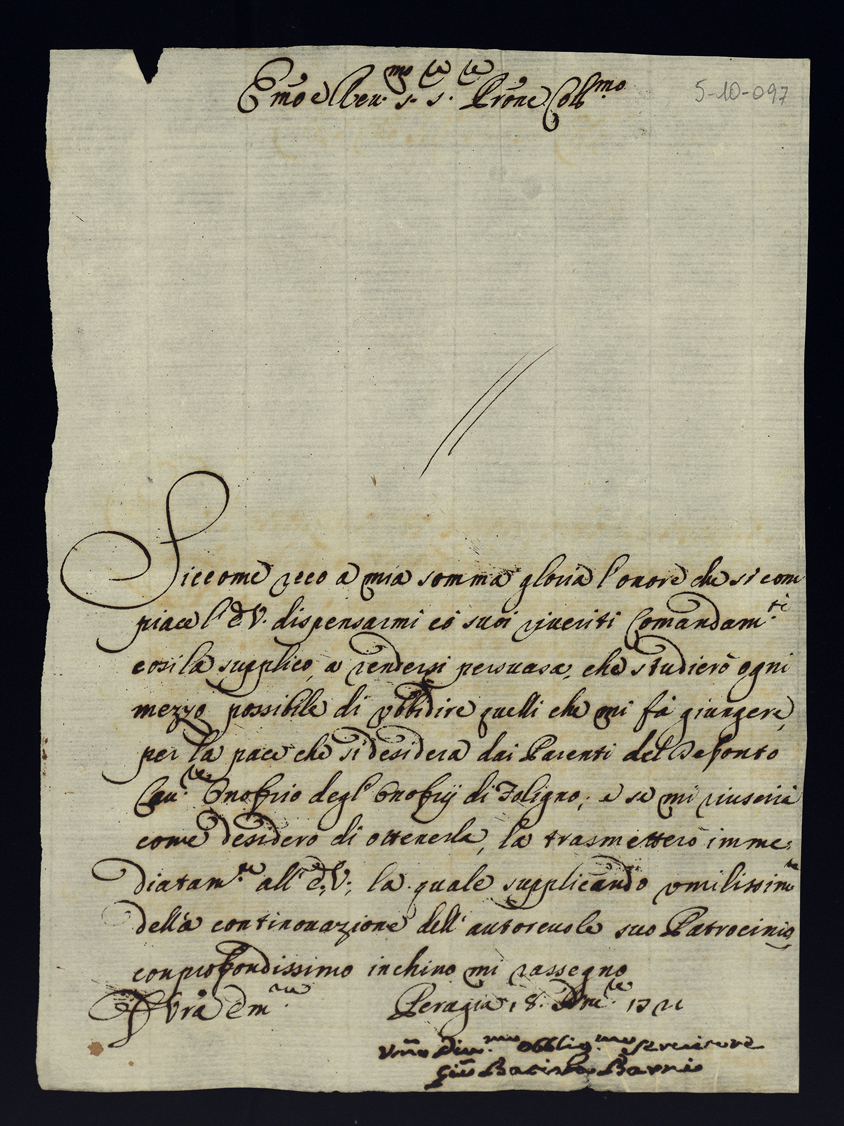 Em̃o e Reu.mo S.re S.re Prõne Coll.mo
5-10-097
Siccome reco a mia somma gloria l'onore che si com
piace l'E.V. dispensarmi có suoi riueriti Comandam.ti
cosi la supplico, a rendersi persuasa, che studierò ogni
mezzo possibile di vbbidire quelli che mi fà giungere,
per la pace che si desidera dai Parenti del Defonto
Cau.re Onofrio degl'Onofrij di Foligno; e se mi riuscirà
come desidero di ottenerla, la trasmetterò imme:
diatam.te all'E.V., la quale supplicando vmilissim.te
della continouazione dell'autoreuole suo Patrocinio
con profondissimo inchino mi rassegno
D Vrã Em.za
Perugia 18. Xm.re
Vm̃o Diu.mo Obblig.mo Seruitore
Gio Batista Barni